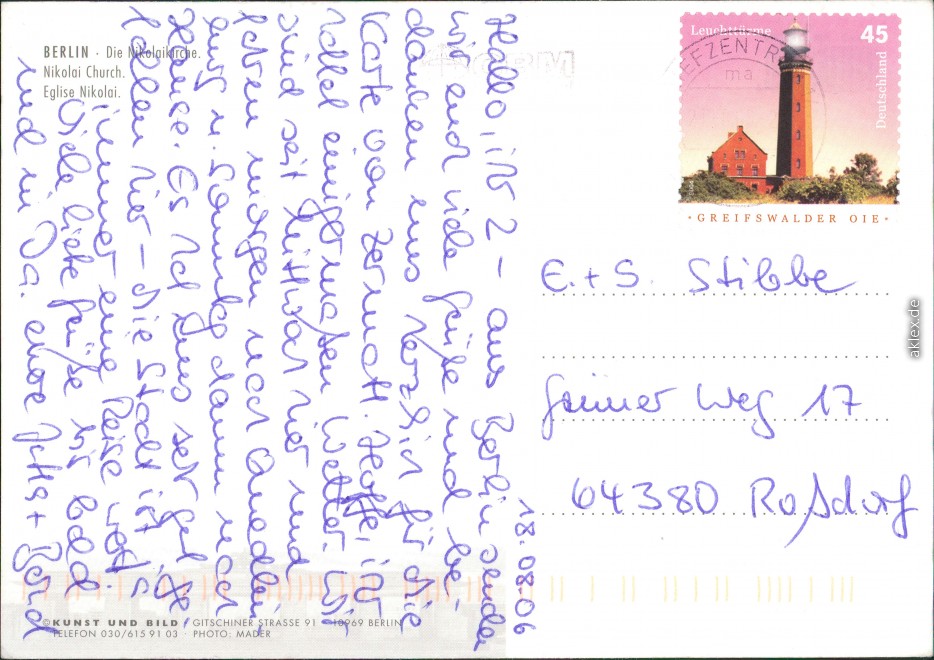 BERLIN · Die Nikolaikirche.
Nikolai Church.
Eglise Nikolai.
18.08.06
Hallo, ihr 2 – aus Berlin senden
wir euch viele Grüße und be-
danken uns herzlich für die
Karte von Zermatt. Hoffe, ihr
hattet einigermaßen Wetter. Wir
sind seit Mittwoch hier und
fahren morgen nach Quedlin-
burg u. Samstag dann nach
Hause. Es hat uns sehr gut ge-
fallen hier – die Stadt ist
immer eine Reise wert
Viele liebe Grüße bis bald
und in Da. eure Jutta + Bernd
Leuchttürme
45
Deutschland
BRIEFZENTR
ma
· GREIFSWALDER OIE ·
E. + S. Stibbe
Grüner Weg 17
64380 Roßdorf
© KUNST UND BILD, GITSCHINER STRASSE 91 · 10969 BERLIN
TELEFON 030/615 91 03 · PHOTO: MADER
aklex.de